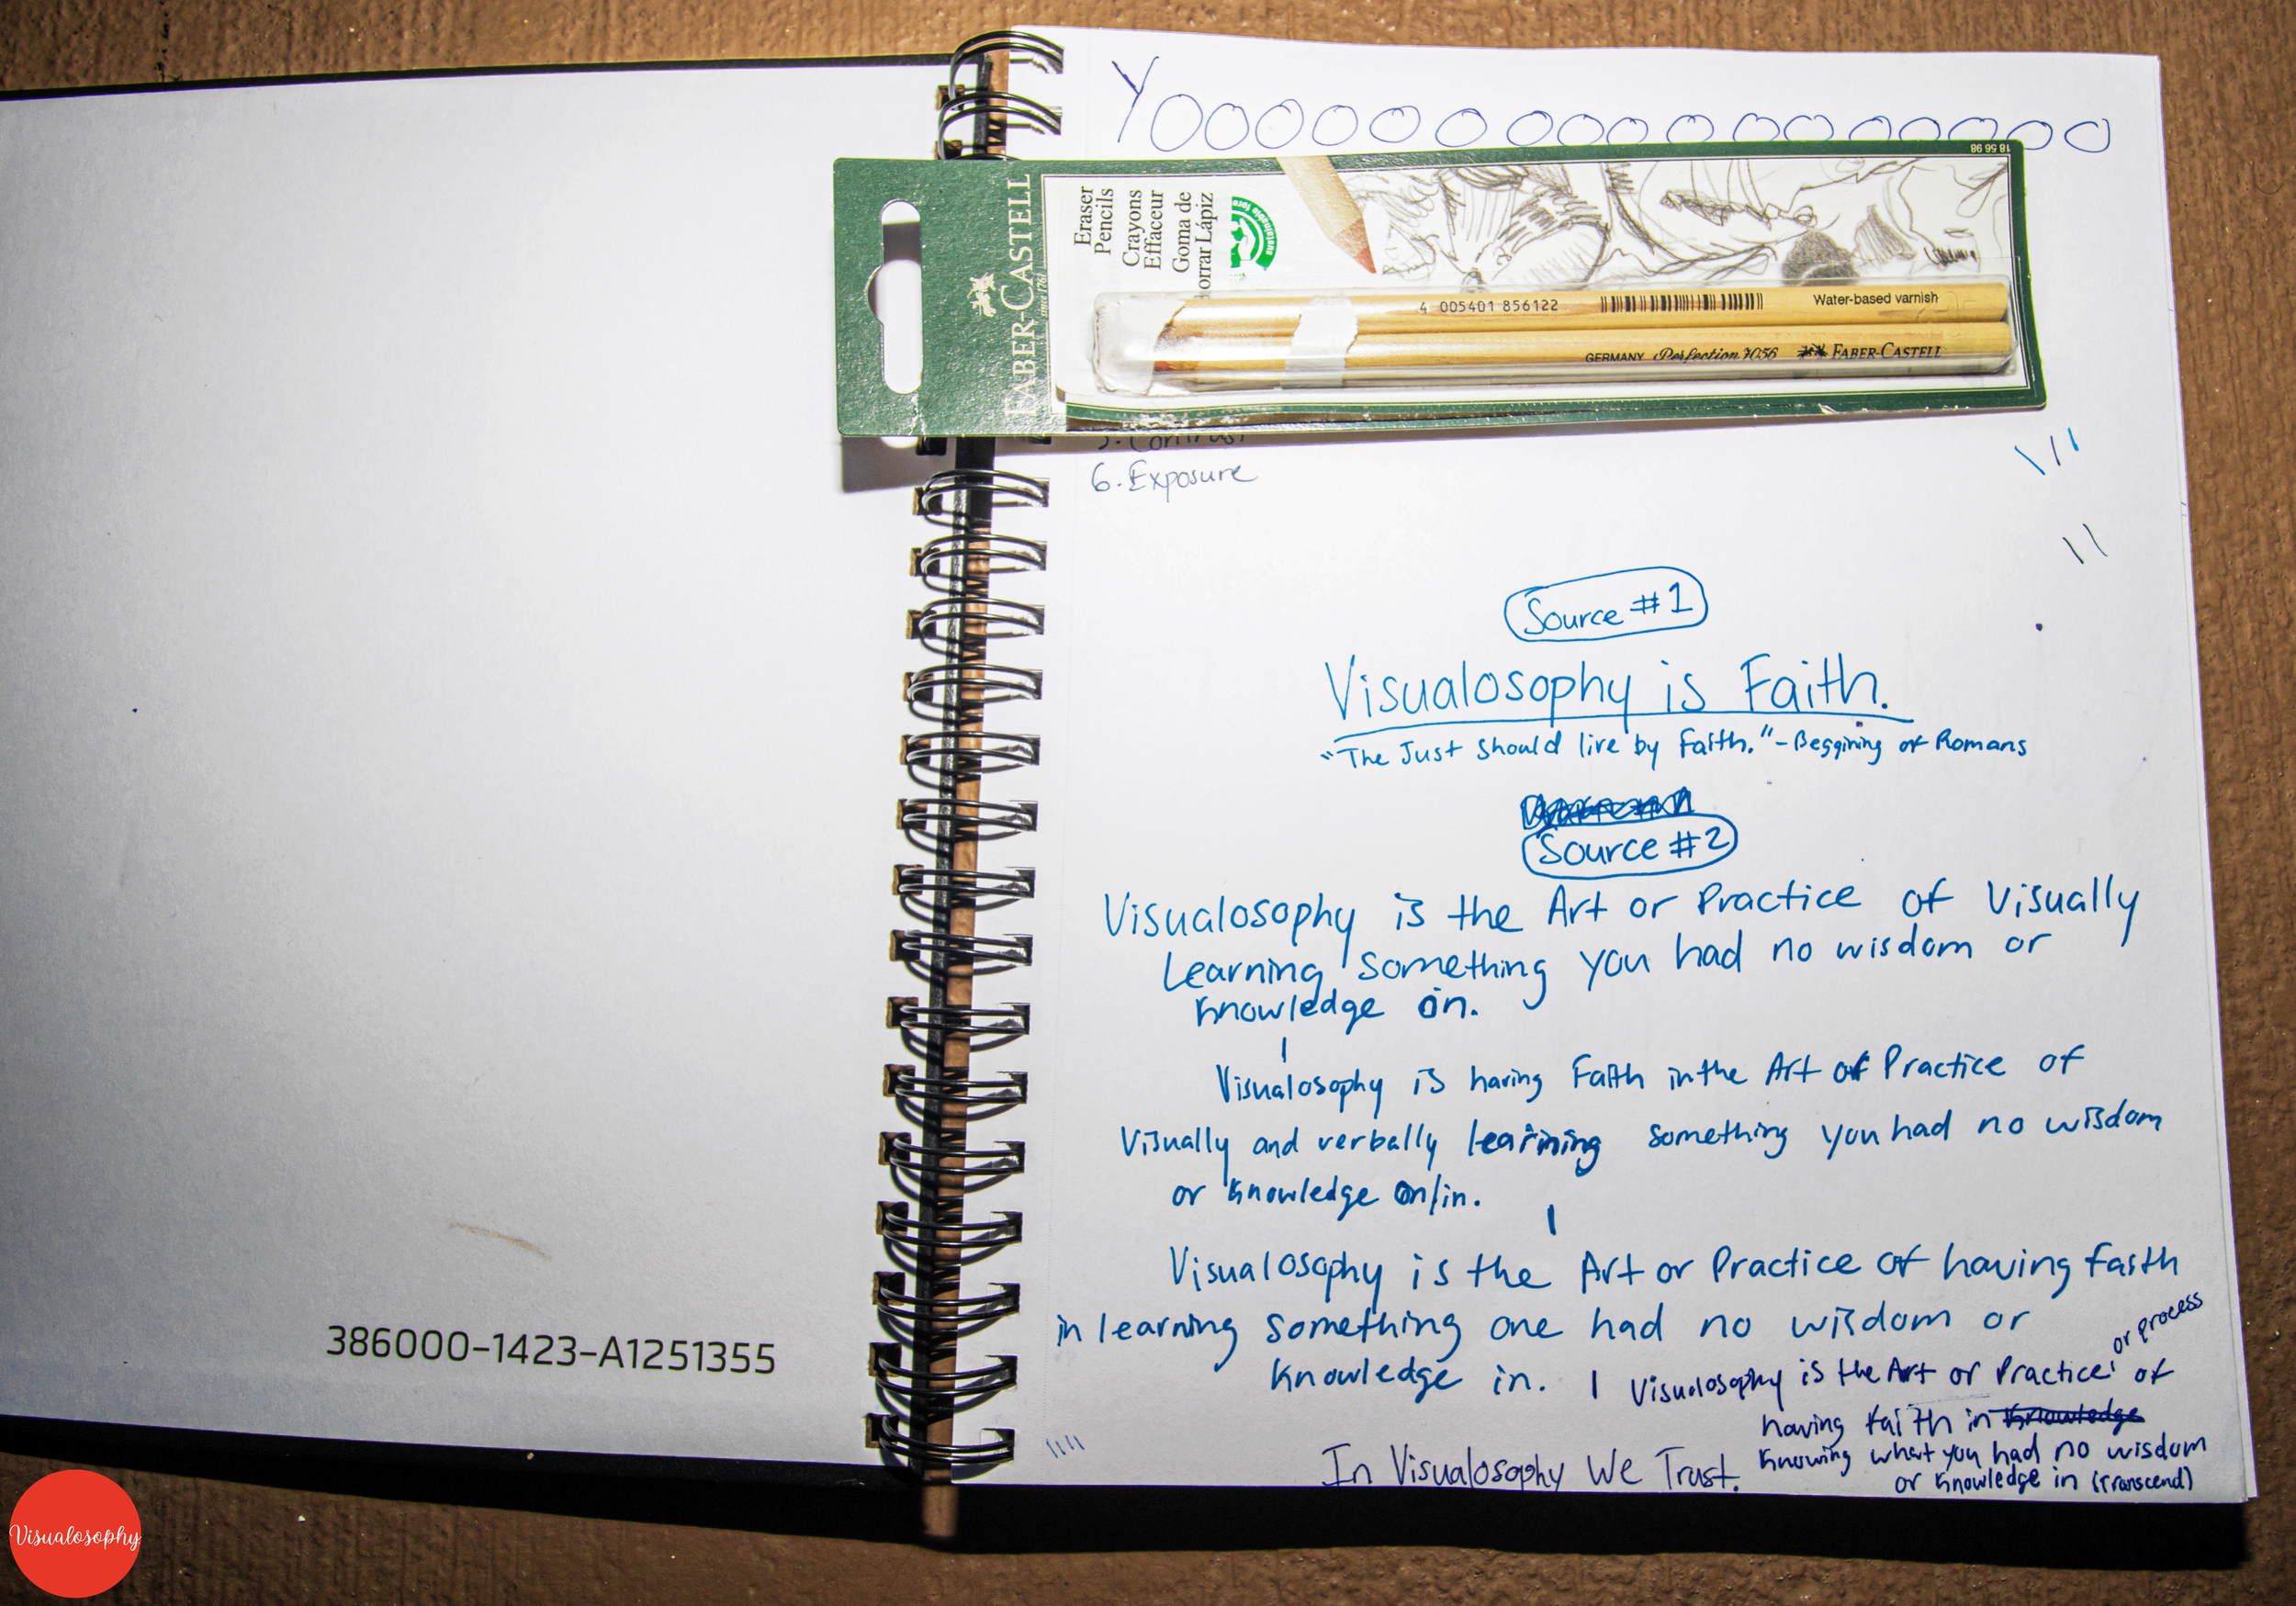 YOOOOOOOOOOOOOOOOOO
18 56 98
FABER-CASTELL
since 1761
Eraser
Pencils
Crayons
Effaceur
Goma de
orrar Lápiz
4 005401 856122
Water-based varnish
GERMANY Perfection 7056 FABER-CASTELL
6. Exposure
Source #1
Visualosophy is Faith.
"The Just should live by Faith." - Beggining of Romans
Source #2
Visualosophy is the Art or Practice of Visually
Learning something you had no wisdom or
knowledge on.
Visualosophy is having Faith in the Art of Practice of
Visually and verbally learning something you had no wisdom
or knowledge on/in.
Visualosophy is the Art or Practice of having faith
in learning something one had no wisdom or
knowledge in. | Visualosophy is the Art or Practice or process of
having faith in knowledge
knowing what you had no wisdom
or knowledge in (transcend)
In Visualosophy We Trust.
386000-1423-A1251355
Visualosophy